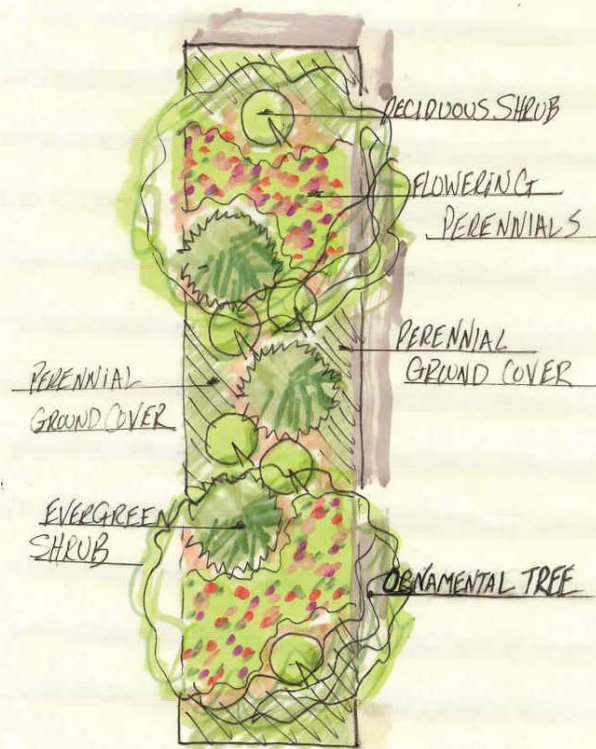 DECIDUOUS SHRUB
FLOWERING
PERENNIALS
PERENNIAL
GROUND COVER
PERENNIAL
GROUND COVER
EVERGREEN
SHRUB
ORNAMENTAL TREE